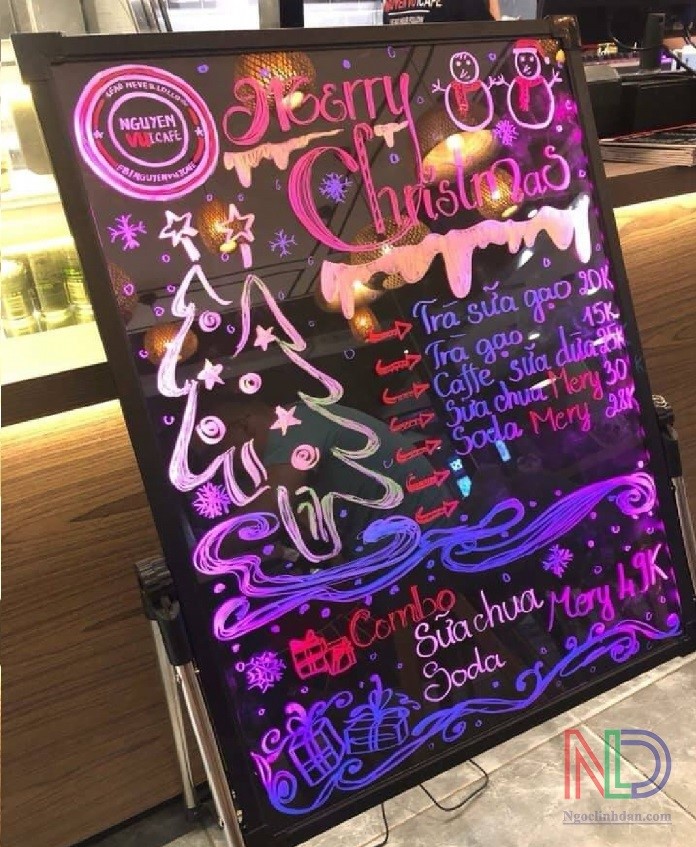 READ NEVER LOLLOW
NGUYEN
VUICAFE
FB/NGUYENVUICAFE
Merry
Christmas
Trà sữa gạo 20K
Trà gạo 15K
Caffe sữa dừa 25K
Sữa chua Mery 30
Soda Mery 28K
Combo
Sữa chua Mery 49K
Soda
NLD
Ngoclinhdan.com